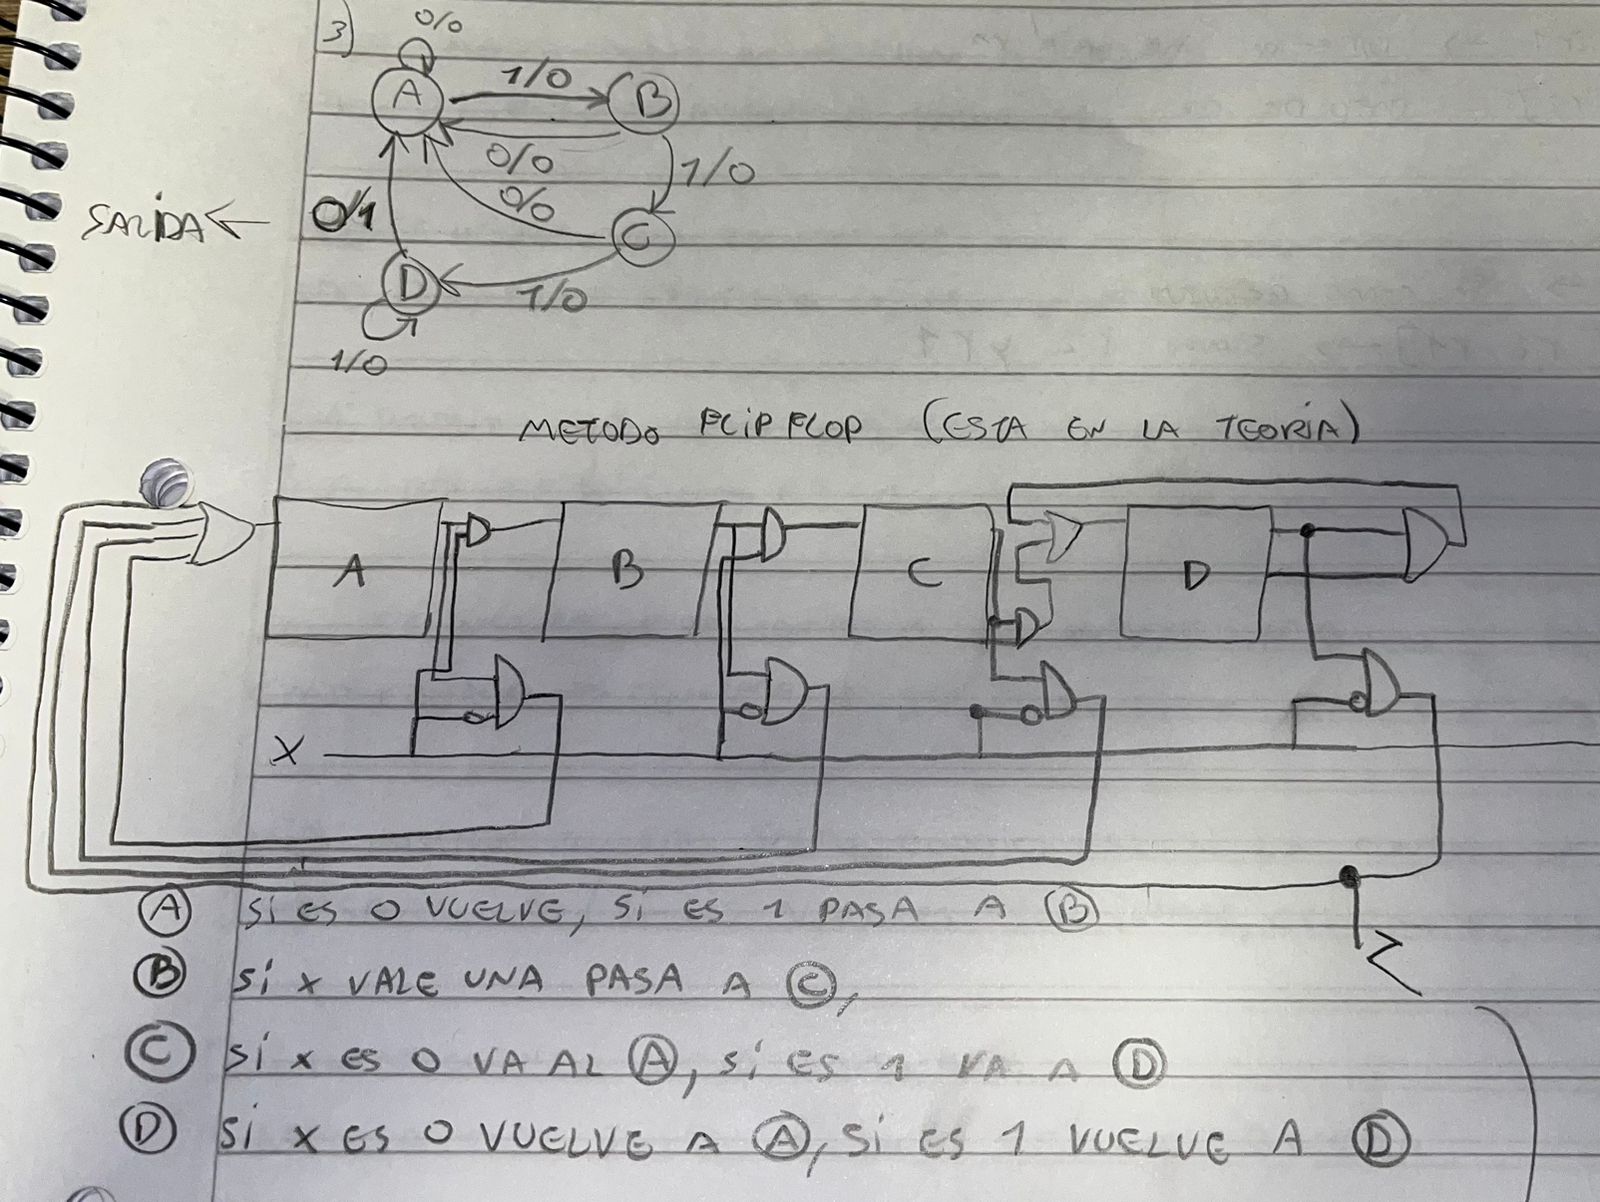 3)
0/0
A
1/0
B
0/0
1/0
0/0
SALIDA ← 0/1
C
D
1/0
1/0
METODO FLIP FLOP (ESTA EN LA TEORIA)
A B C D
X
Z
A SI ES 0 VUELVE, SI ES 1 PASA A B
B SI X VALE UNA PASA A C,
C SI X ES 0 VA AL A, SI ES 1 VA A D
D SI X ES 0 VUELVE A A, SI ES 1 VUELVE A D